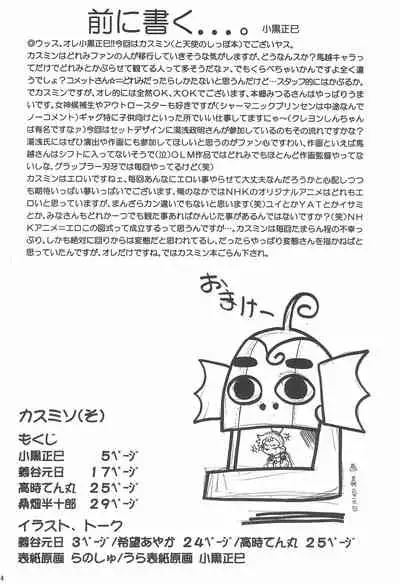 前に書く...。 小黒正巳
◎ウッス。オレ小黒正巳!!今回はカスミン(と天使のしっぽ本)でございヤス。
カスミンはどれみファンの人が移行していきそうな気がしますが、どうなんスか?馬越キャラっ
てだけでどれみとかぶらせて観てる人って多そうだなァ。でもくらべちゃいかんですよ全く違
うでしょ?コメットさん☆=どれみだったらしかたないと思うけど…スタッフ的にはかぶるか。
でもカスミンですが、オレ的には全然OK、大OKでございます。本郷みつるさんはやっぱりうま
いです。女神候補生やアウトロースターも好きですが(シャーマニックプリンセンは中途なんで
ノーコメント)ギャグ特に子供向けといった所しでいい仕事してますにゃ~(クレヨンしんちゃん
は有名ですなァ)今回はセットデザインに湯浅政明さんが参加しているのもその流れですかな?
湯浅氏にはぜひ演出や作画にも参加してほしいと思うのがファン心ですわい。作画といえば馬
越さんはシフトに入ってないそうで(泣)OLM作品ではどれみでもほとんど作画監督やってな
いしなぁ。グラップラー刃牙では毎回やってるけど(笑)
カスミンはエロいですねェ、毎回あんなにエロい事やらせて大丈夫なんだろうかと心配しつつ
も期待いっぱい夢いっぱいでございます。俺のなかではNHKのオリジナルアニメはどれもエ
ロいと思っていますが、まんざらカン違いでもないと思います(笑)ユイとかYATとかイサミ
とか、みなさんもどれか一つでも観た事あればかんじた事があるんではないですか?(笑)NH
Kアニメ=エロこの図式って成立するって思うんですが…。カスミンは毎回たまらん程の不幸っ
ぷり。しかも絶対に回りからは変態だと思われてるし、だったらやっぱり変態さんを描かねばと
思っていたんですが。オレだけですね。ではカスミン本ごらん下され。
おまけー
カスミソ(そ)
もくじ
小黒正巳 5ページ
鶴谷元日 17ページ
高時てん丸 25ページ
桑畑半十郎 29ページ
イラスト、トーク
鶴谷元日 3ページ/希望あやか 24ページ/高時てん丸 25ページ
表紙原画 らのしゅ/うら表紙原画 小黒正巳
4